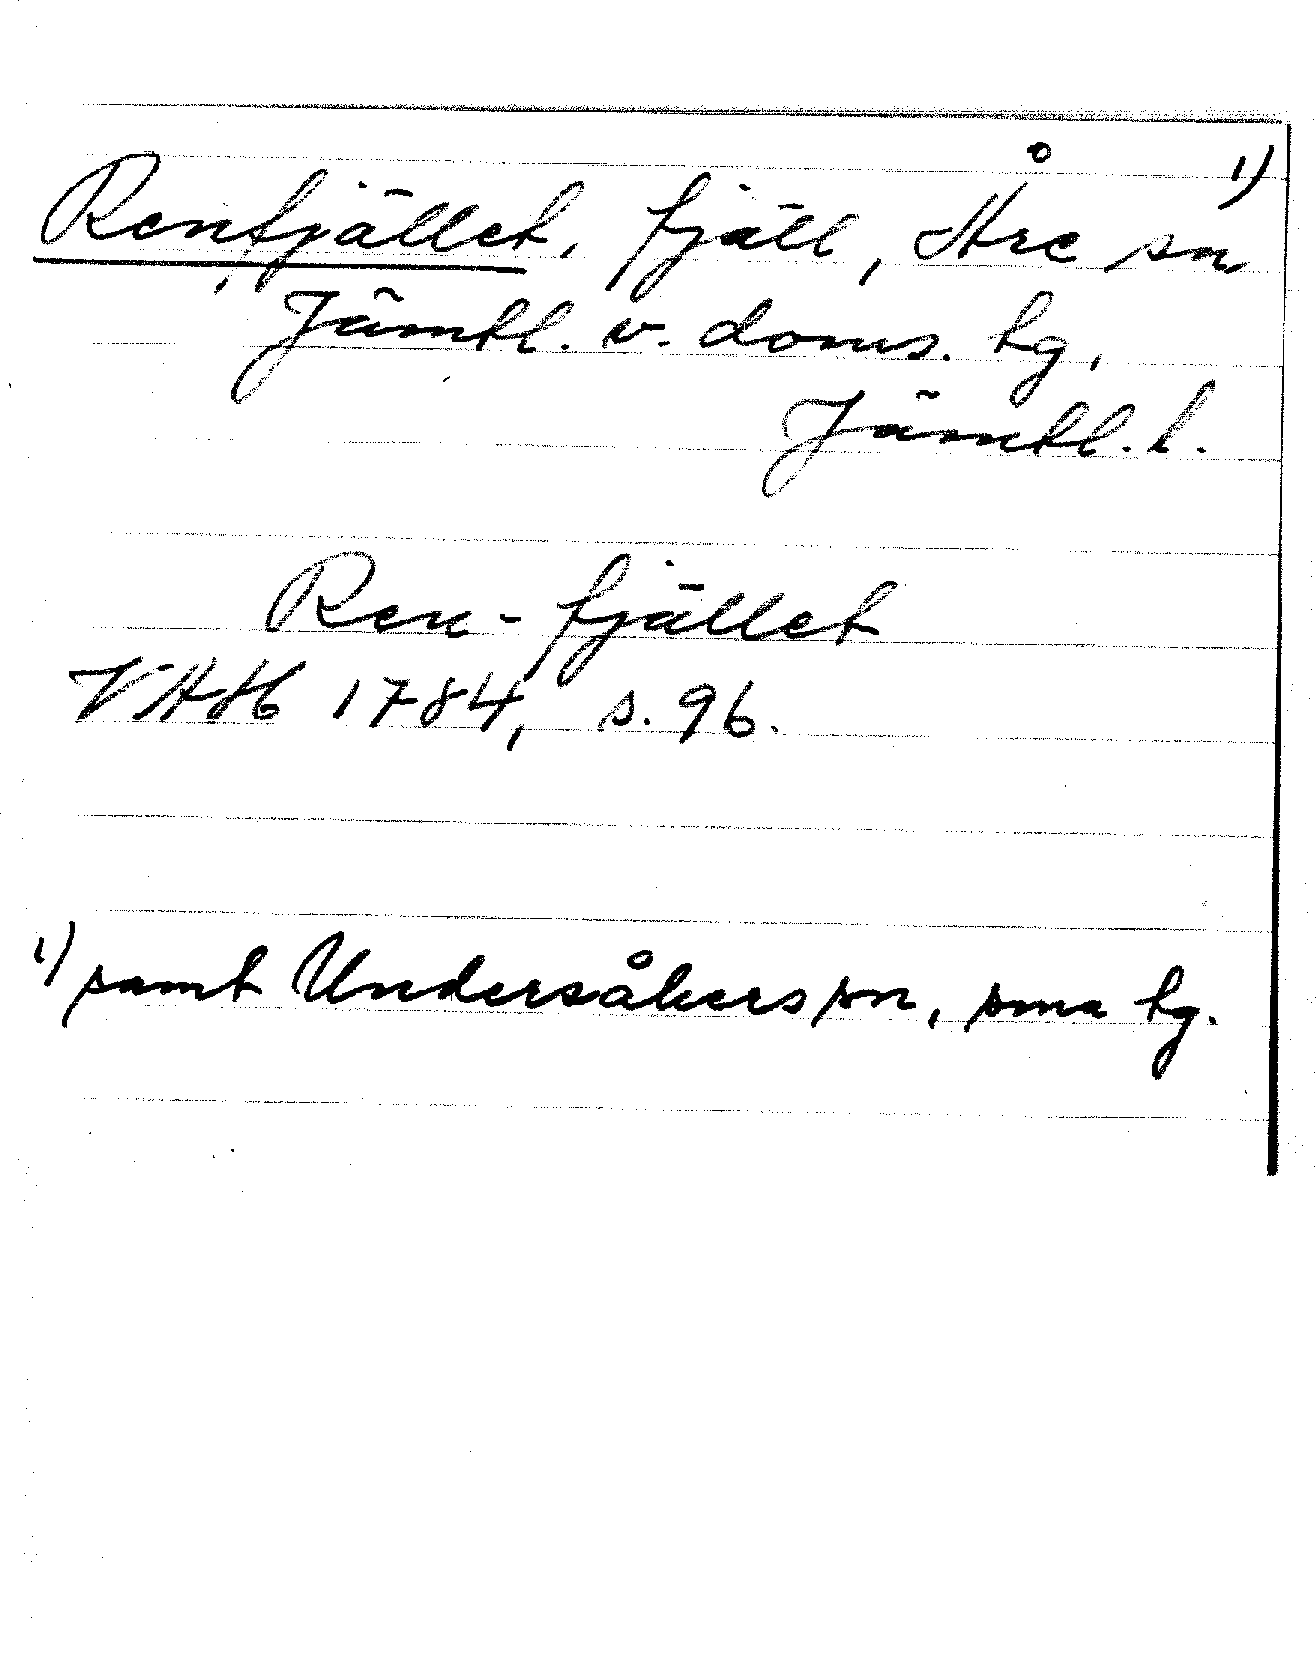 Renfjället, fjäll, Åre sn 1)
Jämtl. v. doms. tg,
Jämtl. l.
Ren-fjället
VHAH 1784, s. 96.
1) samt Undersåkers sn, sma tg.